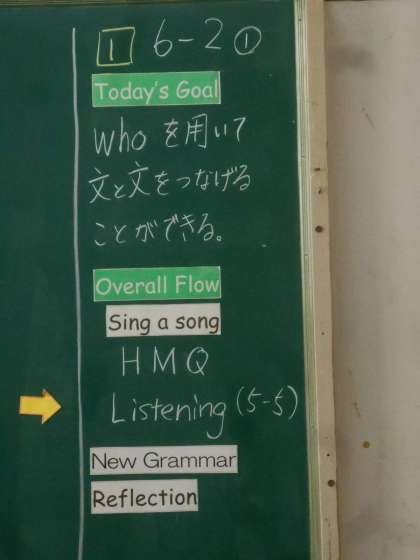 1 6-2 ①
Today's Goal
who を用いて
文と文をつなげる
ことができる。
Overall Flow
Sing a song
HMQ
Listening (5-5)
New Grammar
Reflection